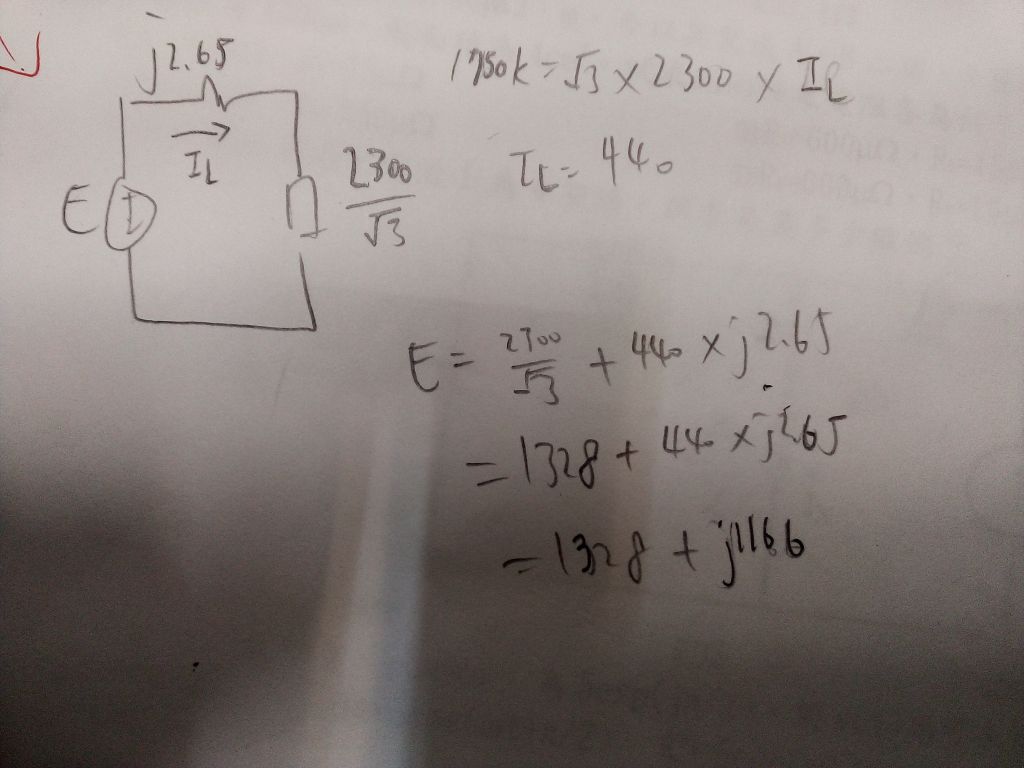 j2.65
IL
E
2300/√3
1750k = √3 × 2300 × IL
IL = 440
E = 2300/√3 + 440 × j2.65
= 1328 + 440 × j2.65
= 1328 + j1166